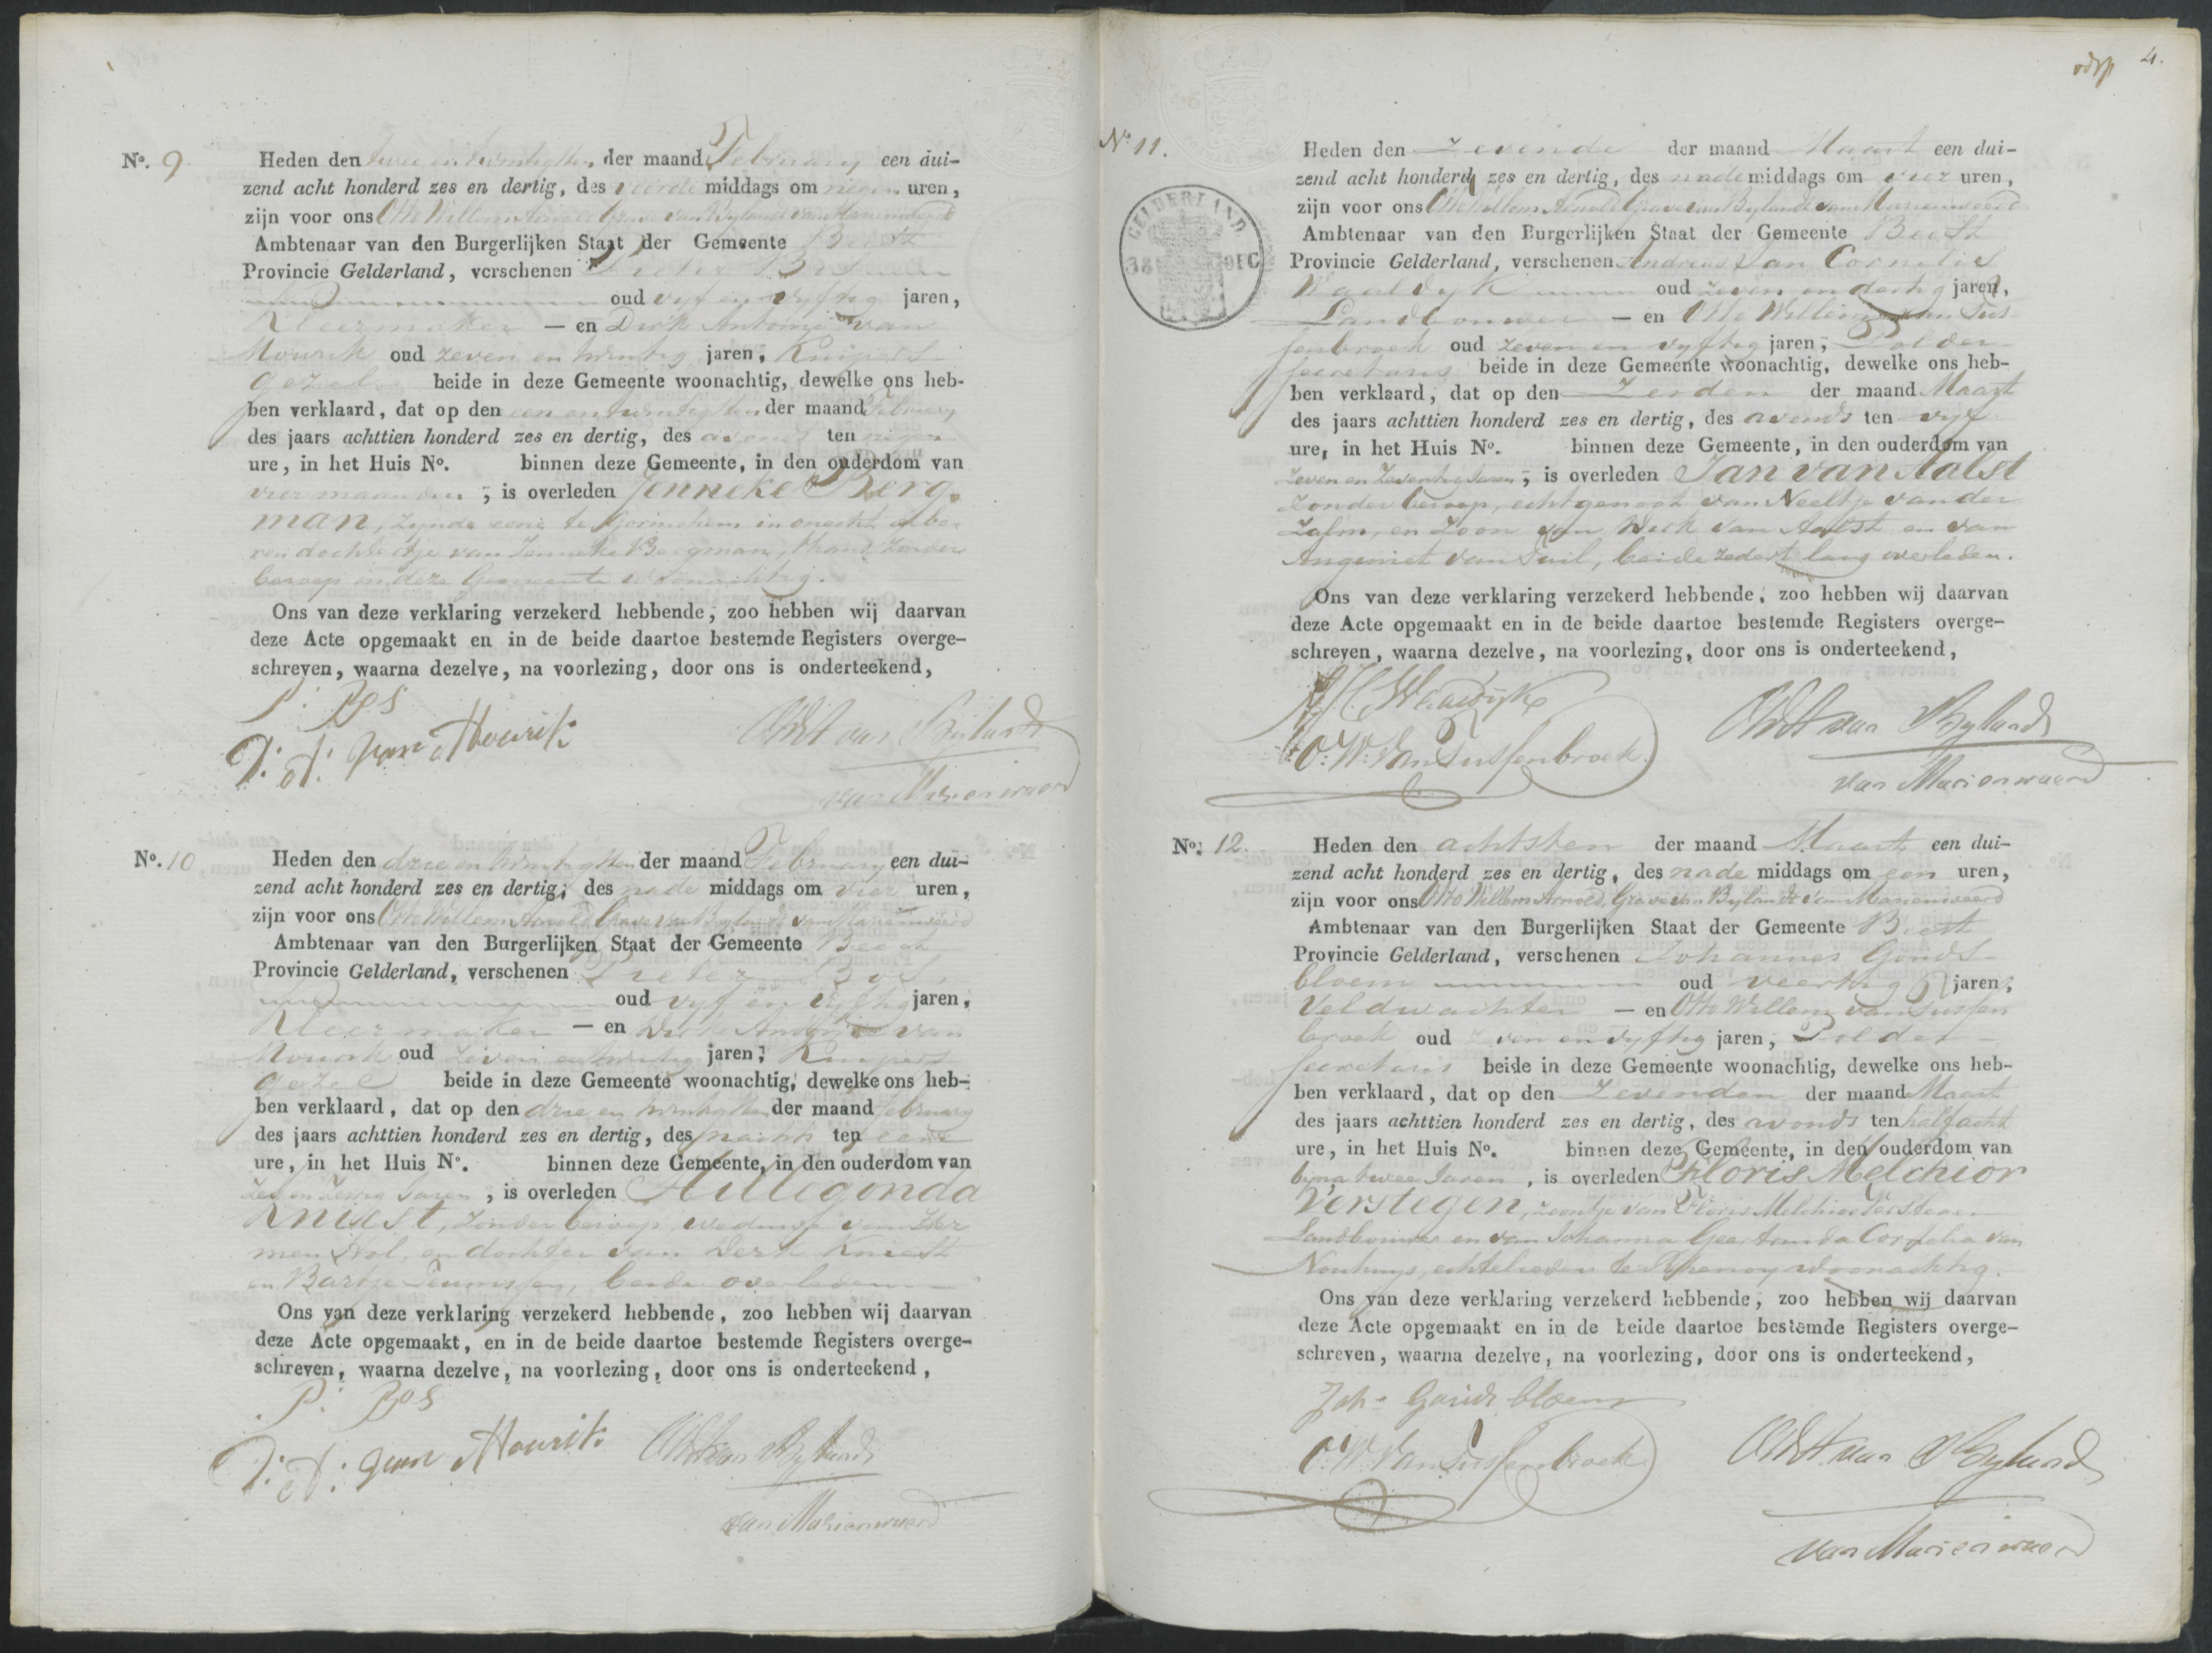 No. 9.
Heden den twee en twintigsten der maand February een dui-
zend acht honderd zes en dertig, des voorde middags om negen uren,
zijn voor ons Otto Willem Arnold Grave van Bylandt van Marienwaerd
Ambtenaar van den Burgerlijken Staat der Gemeente Beest
Provincie Gelderland, verschenen Pieter Bos
oud vyf en vyftig jaren,
Kleermaker — en Dirk Antonie van
Mourik oud zeven en twintig jaren, Kuipers
gezel beide in deze Gemeente woonachtig, dewelke ons heb-
ben verklaard, dat op den een en twintigsten der maand February
des jaars achttien honderd zes en dertig, des avonds ten negen
ure, in het Huis No. binnen deze Gemeente, in den ouderdom van
vier maanden, is overleden Jenneke Berg-
man, zynde eene te Gorinchem in onecht gebo-
ren dochtertje van Jenneke Bergman, thans zonder
beroep in deze Gemeente woonachtig.
Ons van deze verklaring verzekerd hebbende, zoo hebben wij daarvan
deze Acte opgemaakt en in de beide daartoe bestemde Registers overge-
schreven, waarna dezelve, na voorlezing, door ons is onderteekend,
P: Bos
D: A: van Mourik
OWA van Bylandt
van Marienwaerd
No. 10
Heden den drie en twintigsten der maand February een dui-
zend acht honderd zes en dertig, des nade middags om vier uren,
zijn voor ons Otto Willem Arnold Grave van Bylandt van Marienwaerd
Ambtenaar van den Burgerlijken Staat der Gemeente Beest
Provincie Gelderland, verschenen Pieter Bos,
oud vyf en vyftig jaren,
Kleermaker — en Dirk Antonie van
Mourik oud zeven en twintig jaren, Kuipers
gezel beide in deze Gemeente woonachtig, dewelke ons heb-
ben verklaard, dat op den drie en twintigsten der maand February
des jaars achttien honderd zes en dertig, des nachts ten een
ure, in het Huis No. binnen deze Gemeente, in den ouderdom van
zes en zestig Jaren, is overleden Hillegonda
Kniest, zonder beroep, weduwe van Her
men Nol, en dochter van Derk Kniest
en Bartje Teunissen, beide overleden
Ons van deze verklaring verzekerd hebbende, zoo hebben wij daarvan
deze Acte opgemaakt, en in de beide daartoe bestemde Registers overge-
schreven, waarna dezelve, na voorlezing, door ons is onderteekend,
P: Bos
D: A: van Mourik
OWA van Bylandt
van Marienwaerd
4.
No 11.
GELDERLAND
Heden den Zevende der maand Maart een dui-
zend acht honderd zes en dertig, des nade middags om vier uren,
zijn voor ons Otto Willem Arnold Grave van Bylandt van Marienwaerd
Ambtenaar van den Burgerlijken Staat der Gemeente Beest
Provincie Gelderland, verschenen Andreas Jan Cornelis
Waaldyk oud zeven en dertig jaren,
Landbouwer — en Otto Willem van Tus-
senbroek oud zeven en vyftig jaren, Polder-
secretaris beide in deze Gemeente woonachtig, dewelke ons heb-
ben verklaard, dat op den Zesden der maand Maart
des jaars achttien honderd zes en dertig, des avonds ten vyf
ure, in het Huis No. binnen deze Gemeente, in den ouderdom van
zeven en zeventig Jaren, is overleden Jan van Aalst
zonder beroep, echtgenoot van Neeltje van der
Zalm, en Zoon van Dirk van Aalst en van
Angeniet van Tuil, beide zedert lang overleden.
Ons van deze verklaring verzekerd hebbende, zoo hebben wij daarvan
deze Acte opgemaakt en in de beide daartoe bestemde Registers overge-
schreven, waarna dezelve, na voorlezing, door ons is onderteekend,
AJC Waaldijk
O: W: van Tussenbroek
OWA van Bylandt
van Marienwaerd
No. 12.
Heden den achtsten der maand Maart een dui-
zend acht honderd zes en dertig, des nade middags om een uren,
zijn voor ons Otto Willem Arnold, Grave van Bylandt van Marienwaerd
Ambtenaar van den Burgerlijken Staat der Gemeente Beest
Provincie Gelderland, verschenen Johannes Gouds-
bloem oud veertig jaren,
Veldwachter — en Otto Willem van Tussen
broek oud zeven en vyftig jaren, Polder-
secretaris beide in deze Gemeente woonachtig, dewelke ons heb-
ben verklaard, dat op den Zevenden der maand Maart
des jaars achttien honderd zes en dertig, des avonds ten half acht
ure, in het Huis No. binnen deze Gemeente, in den ouderdom van
byna twee Jaren, is overleden Floris Melchior
Verstegen, zoontje van Floris Melchior Verstegen
Landbouwer en van Johanna Geertruida Cornelia van
Nouhuys, echtelieden te Rhenoy woonachtig.
Ons van deze verklaring verzekerd hebbende, zoo hebben wij daarvan
deze Acte opgemaakt en in de beide daartoe bestemde Registers overge-
schreven, waarna dezelve, na voorlezing, door ons is onderteekend,
Joh: Goudsbloem
O: W: van Tussenbroek
OWA van Bylandt
van Marienwaerd